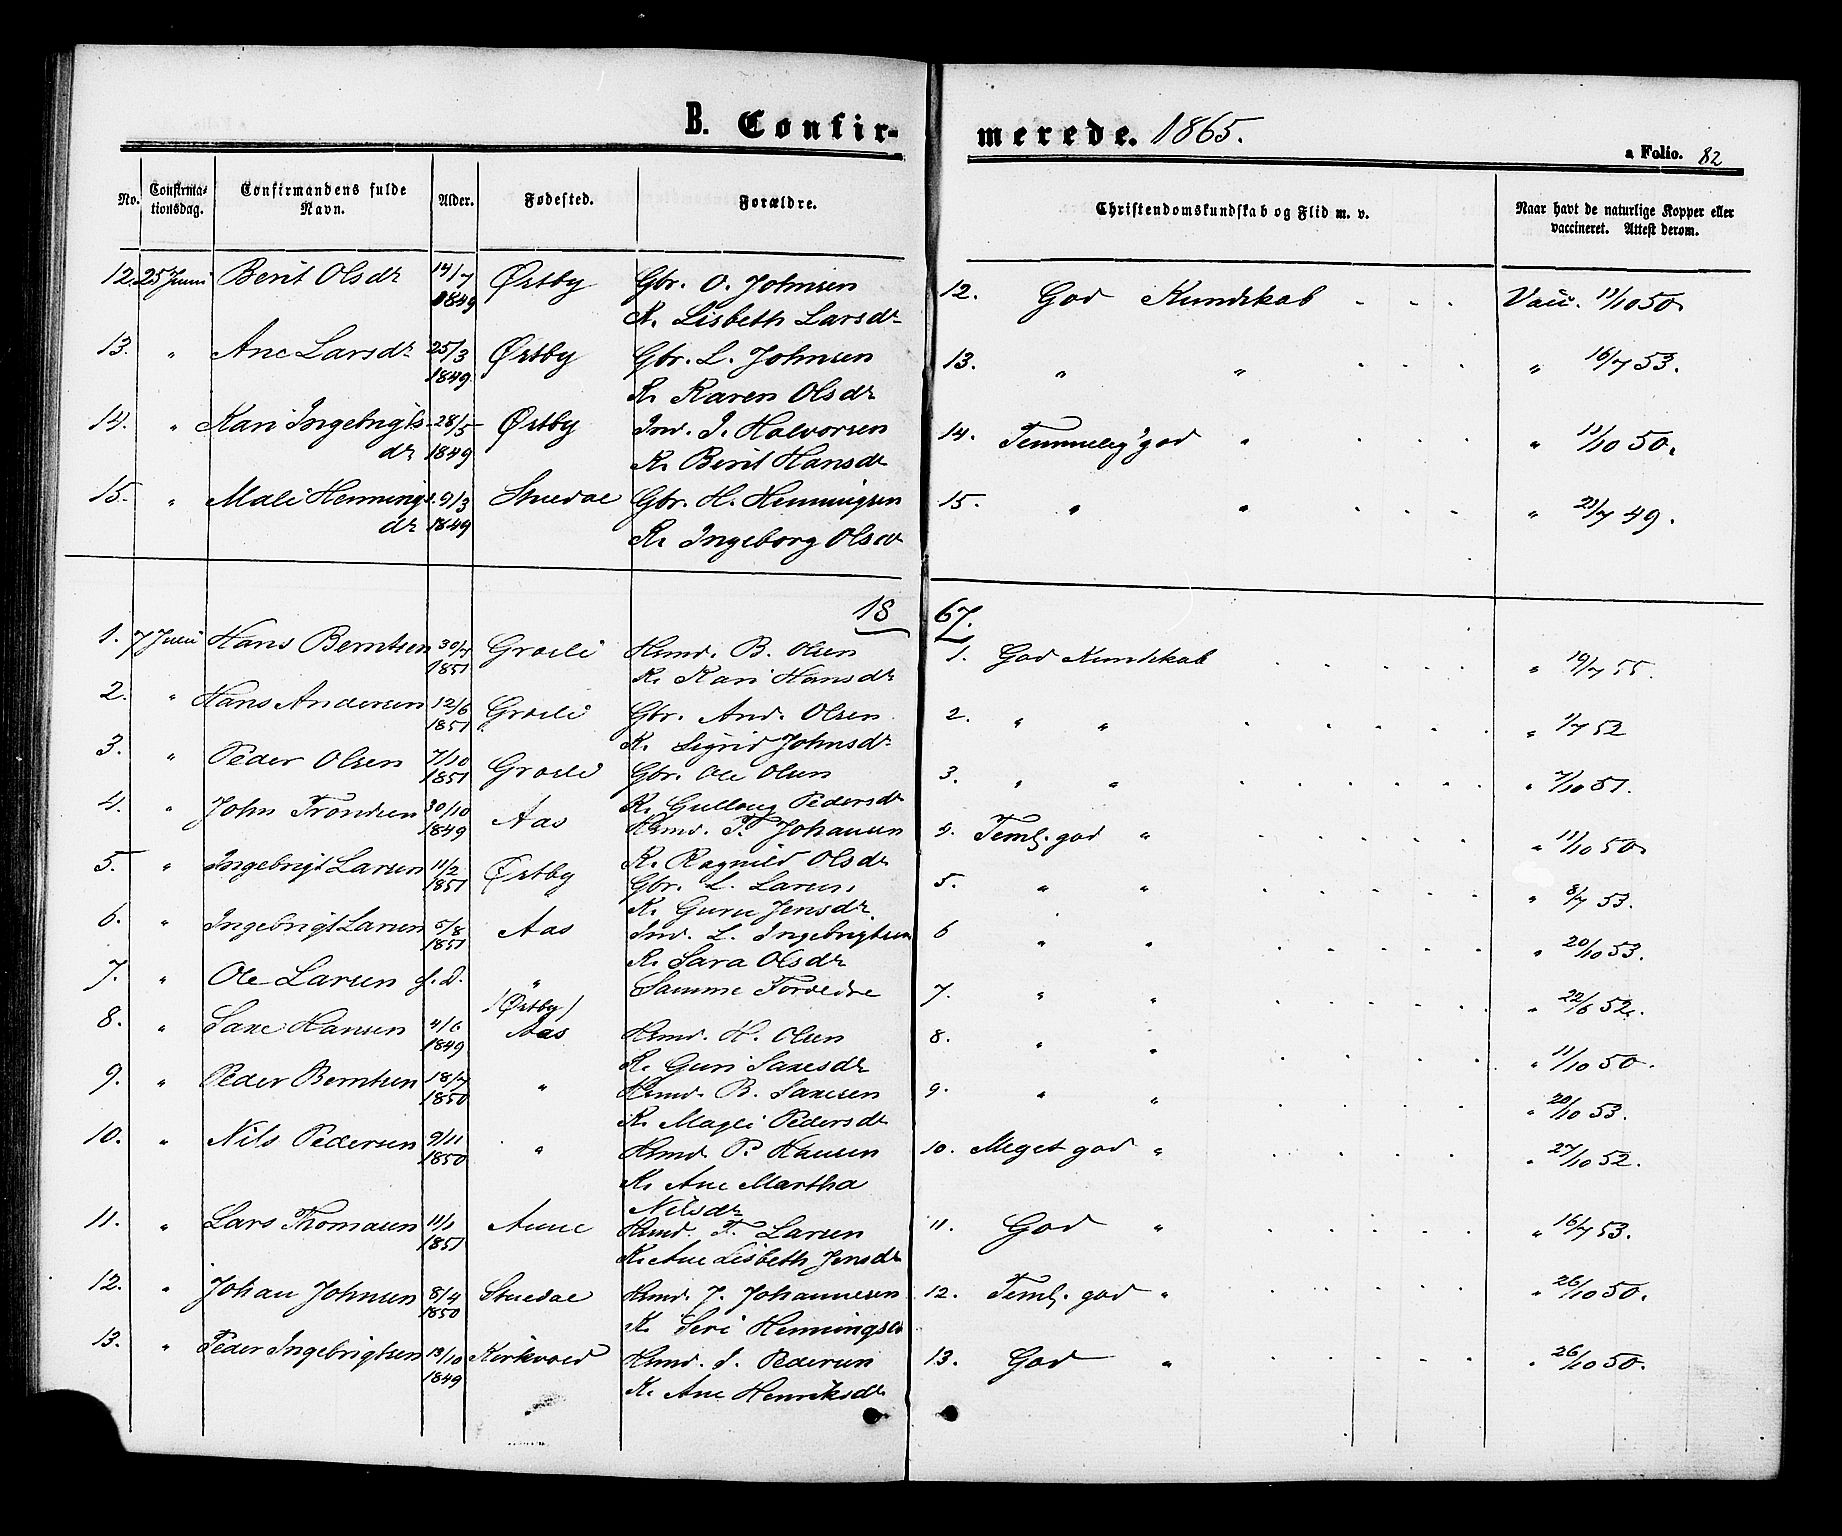 B. Confirmerede. 1865.
a Folio. 82
No. Confirmationsdag. Confirmandens fulde Navn. Alder. Fødested. Forældre. Christendomskundskab og Flid m. v. Naar havt de naturlige Kopper eller vaccineret. Attest derom.
12. 25 Juni Berit Olsdr 14/7 1849 Østby Gbr. O. Johnsen 12. God Kundskab . . . Vacc. 11/10 50.
K. Lisbeth Larsdr
13. " Ane Larsdr 25/3 1849 Østby Gbr. L. Johnsen 13. " " . . . " 16/7 53.
K. Karen Olsdr
14. " Kari Ingebrigtsdr 28/5 1849 Østby Ind. I. Halvorsen 14. Temmelig god " . . . " 11/10 50.
K. Berit Hansdr
15. " Mali Henningsdr 9/3 1849 Stuedal Gbr. H. Henningsen 15. " " . . . " 23/7 49.
K. Ingeborg Olsdr
1867.
1. 7 Juli Hans Berntsen 30/4 1851 Græsli Hsmd. B. Olsen 1. God Kundskab . . . " 19/7 55.
K. Kari Hansdr
2. " Hans Andersen 12/6 1851 Græsli Gbr. And. Olsen 2. " " . . . " 1/7 52
K. Sigrid Johnsdr
3. " Peder Olsen 7/10 1851 Græsli Gbr. Ole Olsen 3. " " . . . " 7/10 51.
K. Gullaug Pedersdr
4. " John Trondsen 30/10 1849 Aas Hsmd. T. Johansen 4. Teml. god " . . . " 11/10 50.
K. Ragnild Olsdr
5. " Ingebrigt Larsen 11/2 1851 Østby Gbr. L. Larsen 5. " " . . . " 8/7 53.
K. Guru Jensdr
6. " Ingebrigt Larsen 5/8 1851 Aas Ind. L. Ingebrigtsen 6 " " . . . " 20/10 53.
K. Sara Olsdr
7. " Ole Larsen s. D. " Samme Forældre 7. " " . . . " 22/6 52.
(Østby)
8. " Saxe Hansen 4/6 1849 Aas Hsmd. H. Olsen 8. " " . . . " 11/10 50.
K. Guri Saxesdr
9. " Peder Berntsen 18/7 1850 " Hsmd. B. Saxesen 9. " " . . . " 20/10 53.
K. Magli Pedersdr
10. " Nils Pedersen 9/11 1850 " Hsmd. P. Hansen 10. Meget god " " 27/10 52.
K. Ane Martha
Nilsdr
11. " Lars Thomasen 11/1 1851 Aune Hsmd. T. Larsen 11. God " . . . " 16/7 53.
K. Ane Lisbeth Jensdr
12. " Johan Johnsen 8/4 1850 Stuedal Hsmd. J. Johannesen 12. Teml. god " . . . " 26/10 50.
K. Seri Henningsdr
13. " Peder Ingebrigtsen 13/10 1849 Kirkvold Hsmd. I. Pedersen 13. God " . . . " 26/10 50.
K. Ane Henriksdr